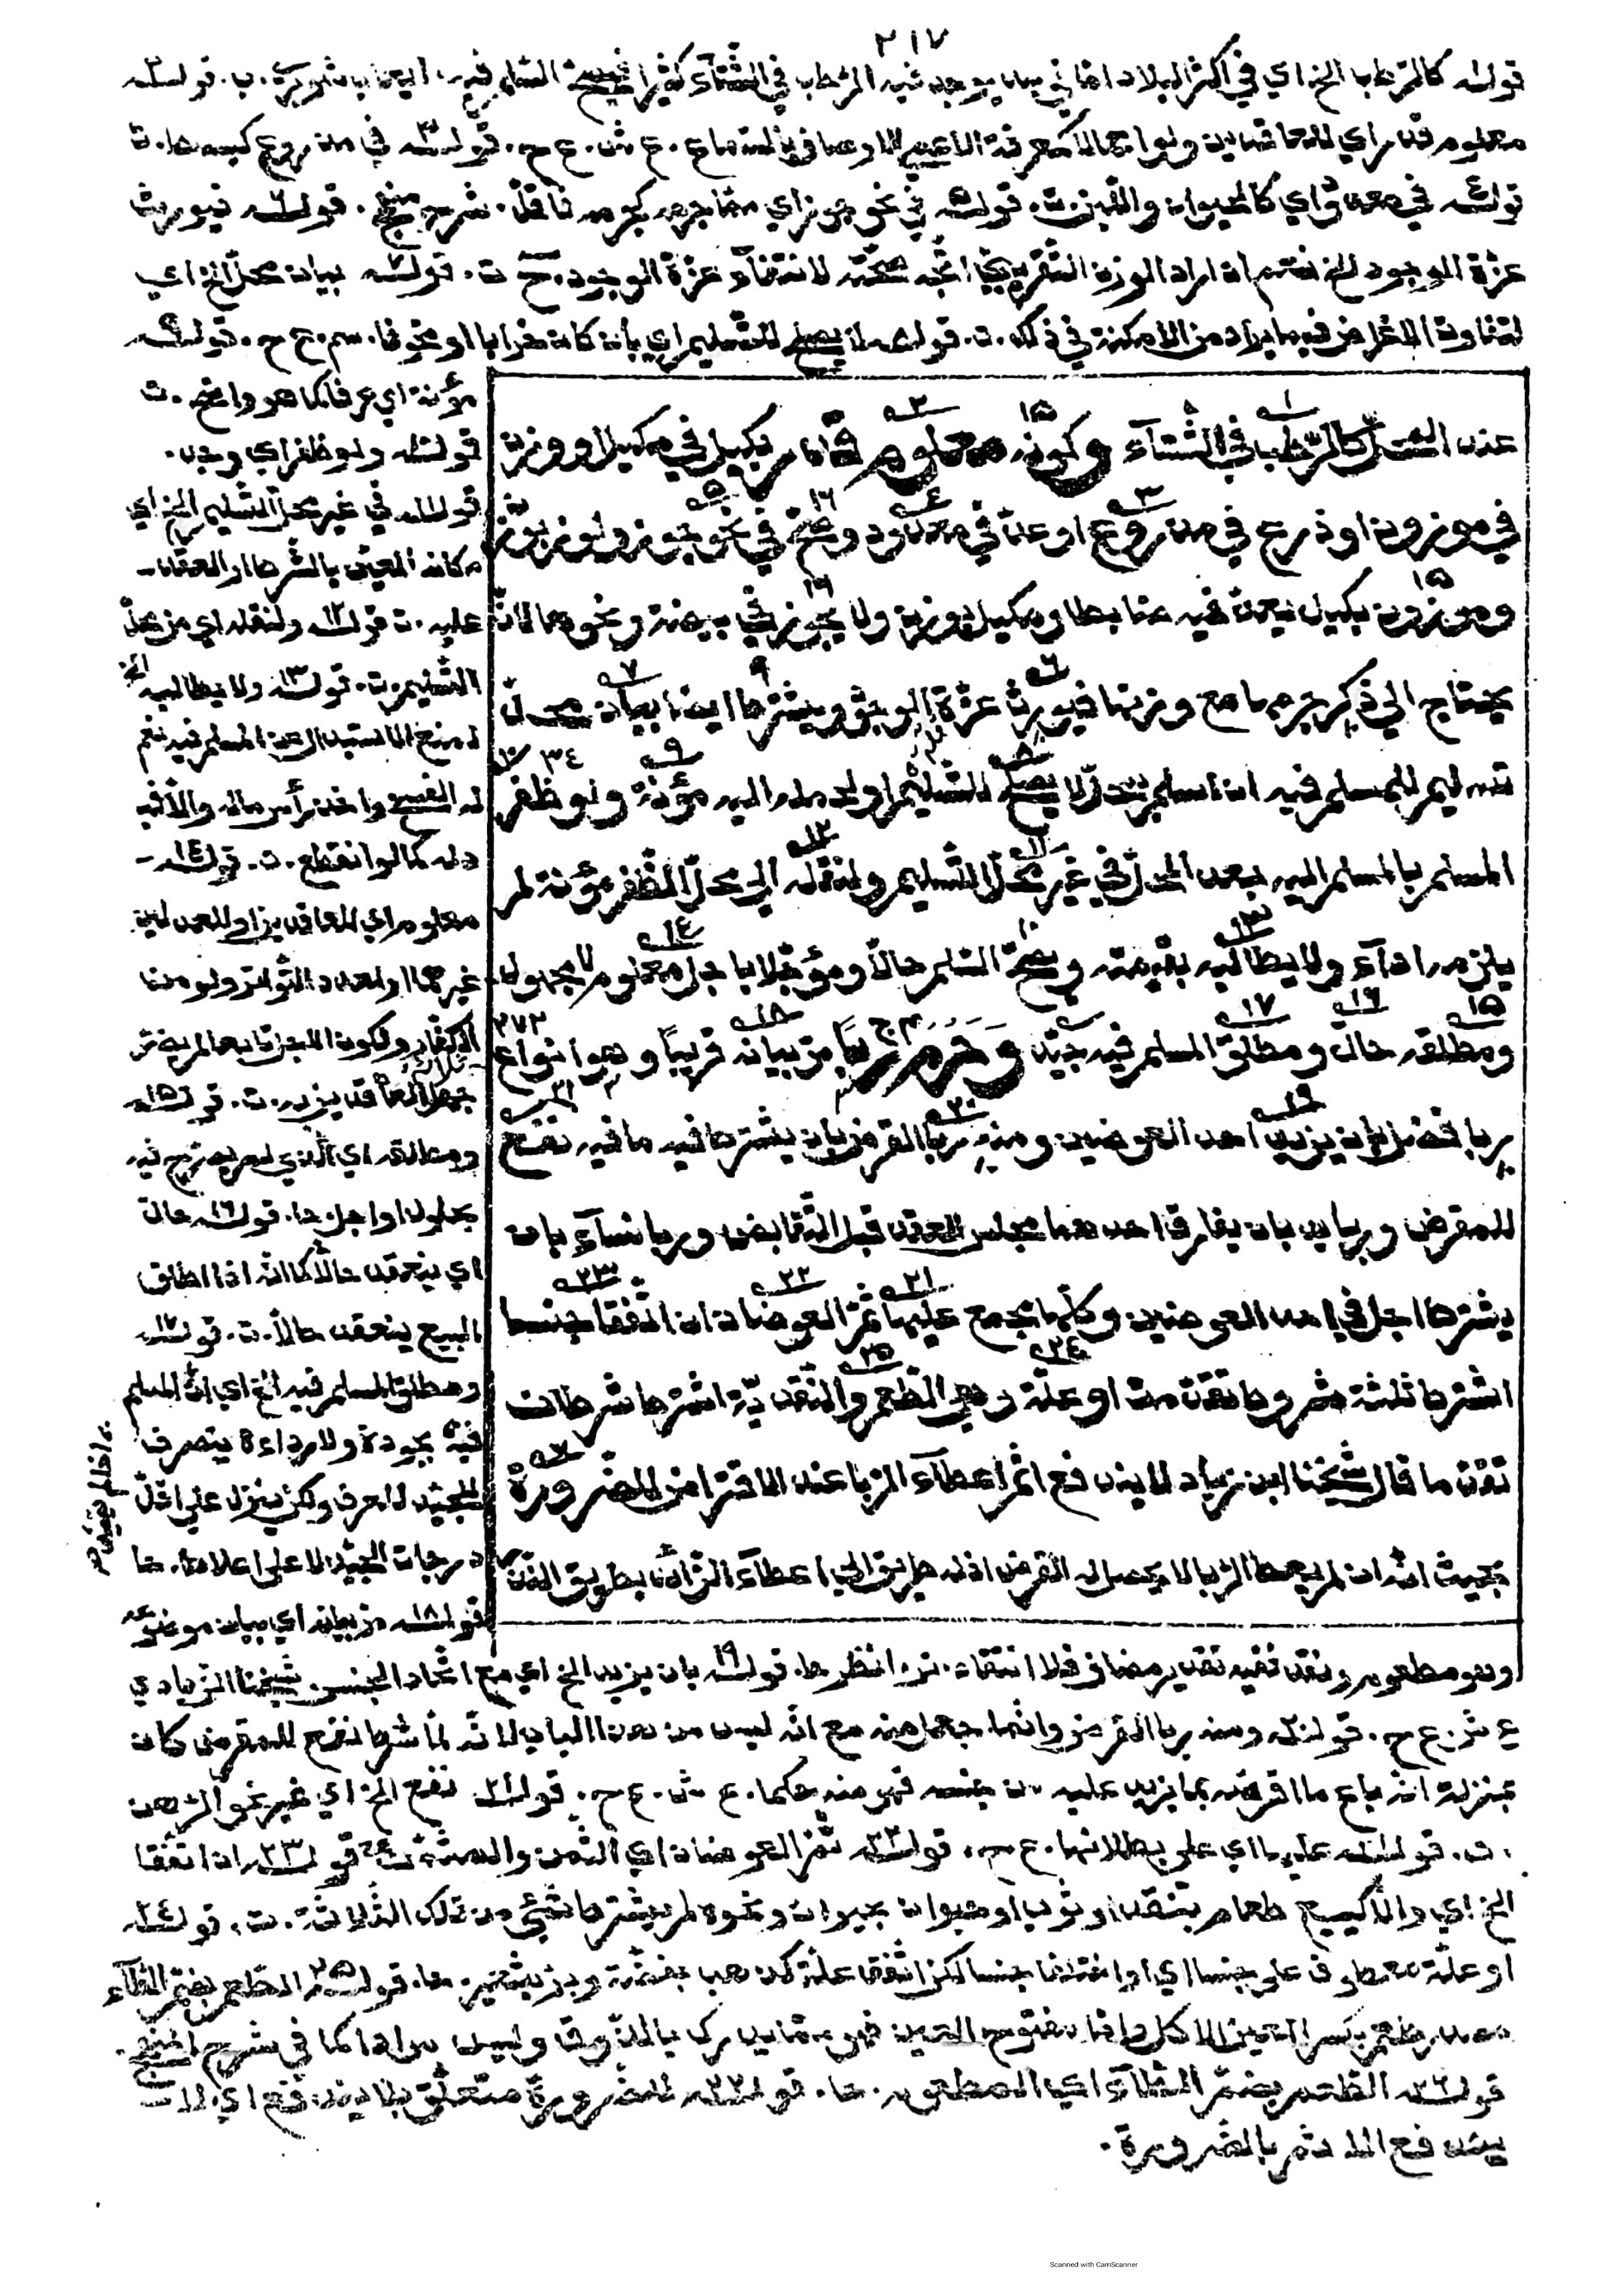 ٢١٧
قوله كالرطب الخ اي في أكثر البلاد اما في بلد يوجد فيه الرطب في الشتآء كثيرا فيصح السلم فيه. ايعاب شوبري. ب. قوله
معلوم قدر اي للعاقدين ولو اجمالا كمعرفة الاعمى الاوصاف بالسماع. ع ش. ع ح. قوله في مذروع كبسط. ت
قوله في معدود اي كالحيوان واللبن. ت. قوله في نحو جوز اي مما جرمه كجرمه فاقل. شرح منهج. قوله فيورث
عزة الوجود الخ نعم ان اراد الوزن التقريبي اتجه صحته لانتفآء عزة الوجود. ح ت. قوله بيان محل الخ اي
لتفاوت الاغراض فيما يراد من الامكنة في ذلك. ت. قوله لا يصلح للتسليم اي بأن كان خرابا او مخوفا. سم. ع ح. قوله
عند الشتآء كالرطب في الشتآء وكونه معلوم قدر بكيل في مكيل او وزن
في موزون او ذرع في مذروع او عد في معدود وصح في نحو جوز ولوز بوزن
وموزون بكيل يعد فيه ضابطا ومكيل بوزن ولا يجوز في بيضة ونحوها لانه
يحتاج الي ذكر جرمها مع وزنها فيورث عزة الوجود ويشترط ايضا بيان محل
تسليم للمسلم فيه ان اسلم بمحل لا يصلح للتسليم او لحمله اليه مؤنة ولو ظفر
المسلم بالمسلم اليه بعد المحل في غير محل التسليم ولنقله الي محل الظفر مؤنة لم
يلزمه اداء ولا يطالبه بقيمته وصح السلم حالا ومؤجلا باجل معلوم لا مجهول
ومطلقه حال ومطلق المسلم فيه جيد وحرم ربا مر بيانه قريبا وهو انواع
ربا فضل بان يزيد احد العوضين ومنه ربا القرض بان يشترط فيه ما فيه نفع
للمقرض وربا يد بان يفارق احدهما مجلس العقد قبل التقابض وربا نسآء بان
يشترط اجل في احد العوضين وكلها مجمع عليها ثم العوضان ان اتفقا جنسا
اشترط ثلثة شروط تقدمت او علة وهي الطعم والنقدية اشترط شرطان
تقدما قال شيخنا ابن زياد لا يندفع اثم اعطآء الربا عند الاقتراض للضرورة
بحيث انه ان لم يعط الربا لا يحصل له القرض اذ له طريق الي اعطآء الزائد بطريق النذر
مؤنة اي عرفا كما هو واضح. ت
قوله ولو ظفر اي وجد.
قوله في غير محل التسليم الخ اي
مكانه المعين بالشرط او العقد
عليه. ت قوله ولنقله اي من محل
التسليم. ت. قوله ولا يطالبه الخ
لمنع الاستبدال عن المسلم فيه نعم
له الفسخ واخذ رأس ماله والا فبـ
دله كما لو انقطع. ت. قوله
معلوم اي للعاقدين او لعدلين
غيرهما او لعدد التواتر ولو من
الكفار ولكون الاجل تابعا لم يضر
جهل العاقدين به. ت. قوله
ومطلقه اي الذي لم يصرح فيه
بحلول او اجل. حا. قوله حال
اي ينعقد حالا كما انه اذا اطلق
البيع ينعقد حالا. ت. قوله
ومطلق المسلم فيه الخ اي ان المسلم
فيه بجودة ولا رداءة ينصرف
للجيد للعرف ولكن ينزل علي اقل
درجات الجيد لا علي اعلاها. حا
قوله مر بيانه اي بيان موضوعه
وهو مطعوم ونقد ففيه تقدير مضاف فلا انتقاد. انظر حا. قوله بان يزيد الخ اي مع اتحاد الجنس. شيخنا الزيادي
ع ش. ع ح. قوله ومنه ربا القرض وانما جعل منه مع انه ليس من هذا الباب لانه لما شرط نفع للمقرض كان
بمنزلة انه باع ما اقرضه بما يزيد عليه من جنسه فهو منه حكما. ع ش. ع ح. قوله نفع الخ اي غير نحو الرهن
. ت. قوله عليها اي علي بطلانها. ع ح. قوله ثم العوضان اي الثمن والمثمن قوله ان اتفقا
الخ اي والا كبيع طعام بنقد او ثوب او حيوان بحيوان ونحوه لم يشترط شئ من تلك الثلاثة. ت. قوله
او علة معطوف علي جنسا اي او اختلفا جنسا لكن اتفقا علة كذهب بفضة وبر بشعير. حا. قوله الطعم بضم الطآء
مصدر طعم بكسر العين الاكل واما مفتوح الـ فهو ما يدرك بالذوق وليس مرادا كما في شرح المنهج.
قوله الطعم بضم الطآء اي المطعوم. حا. قوله للضرورة متعلق بلا يندفع اي لا
يندفع الاثم بالضرورة.
Scanned with CamScanner